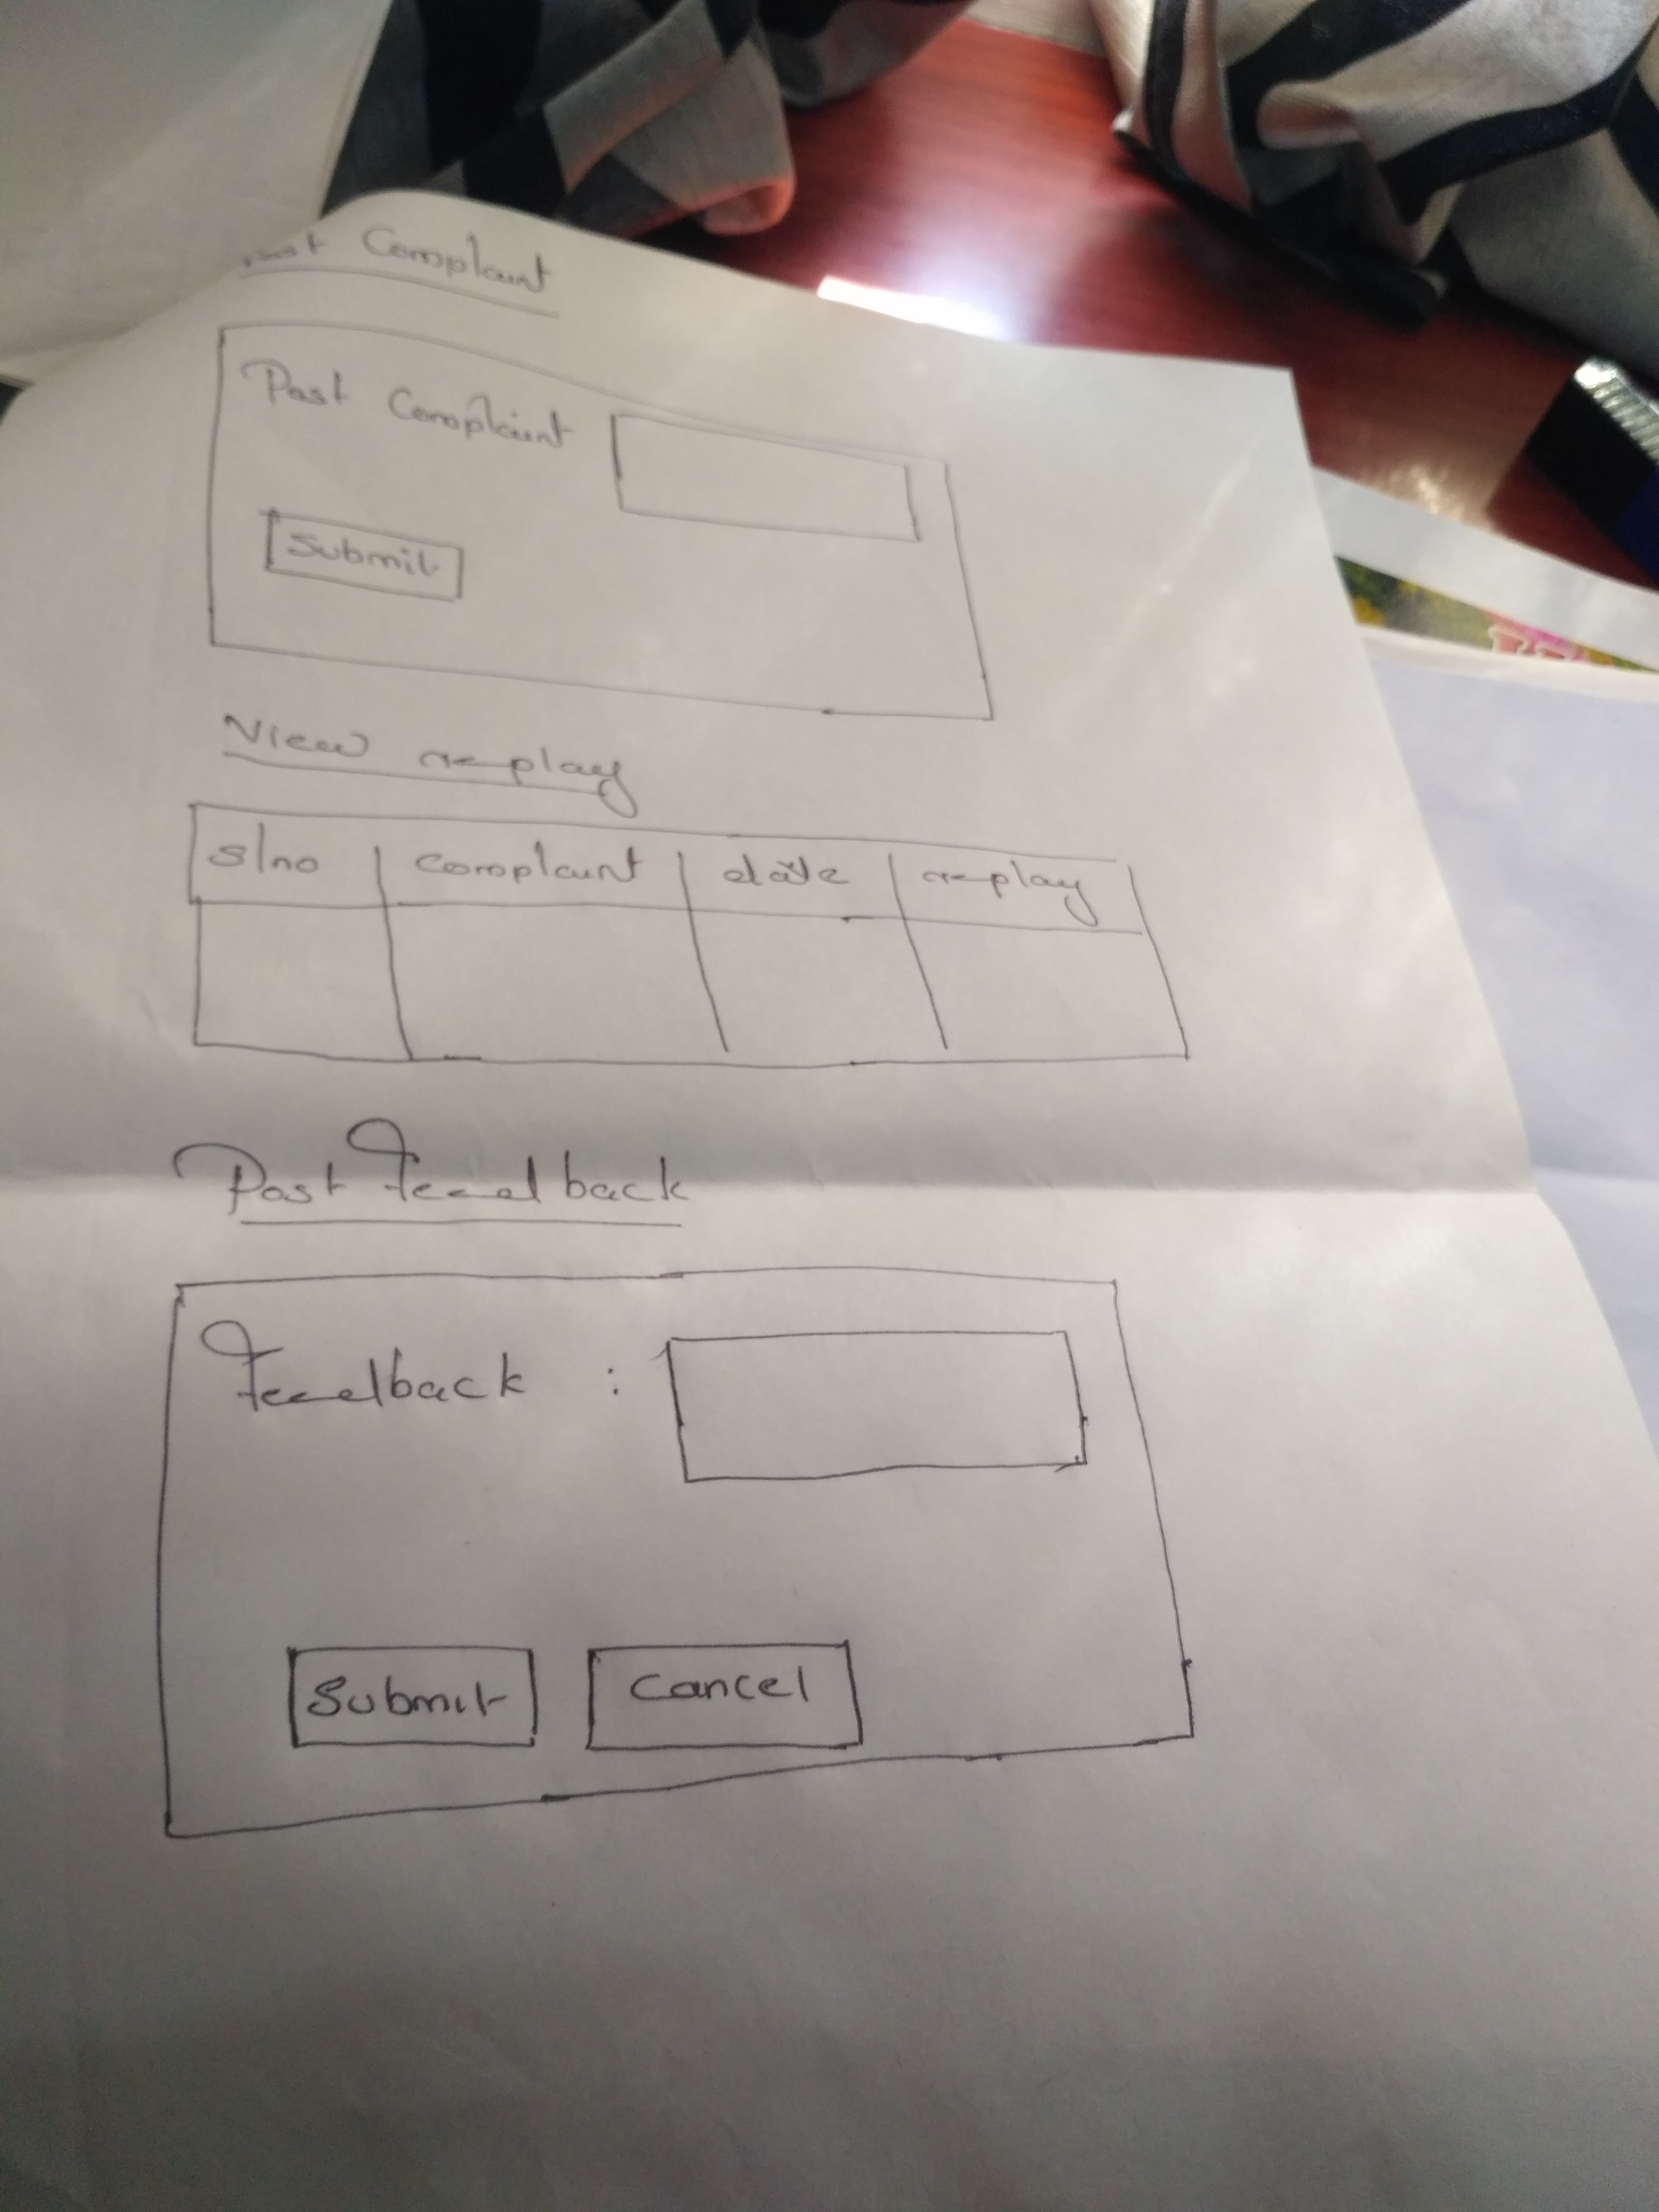 Post Complaint
Post Complaint
Submit
View replay
sl no complaint date replay
Post Feedback
Feedback :
Submit Cancel